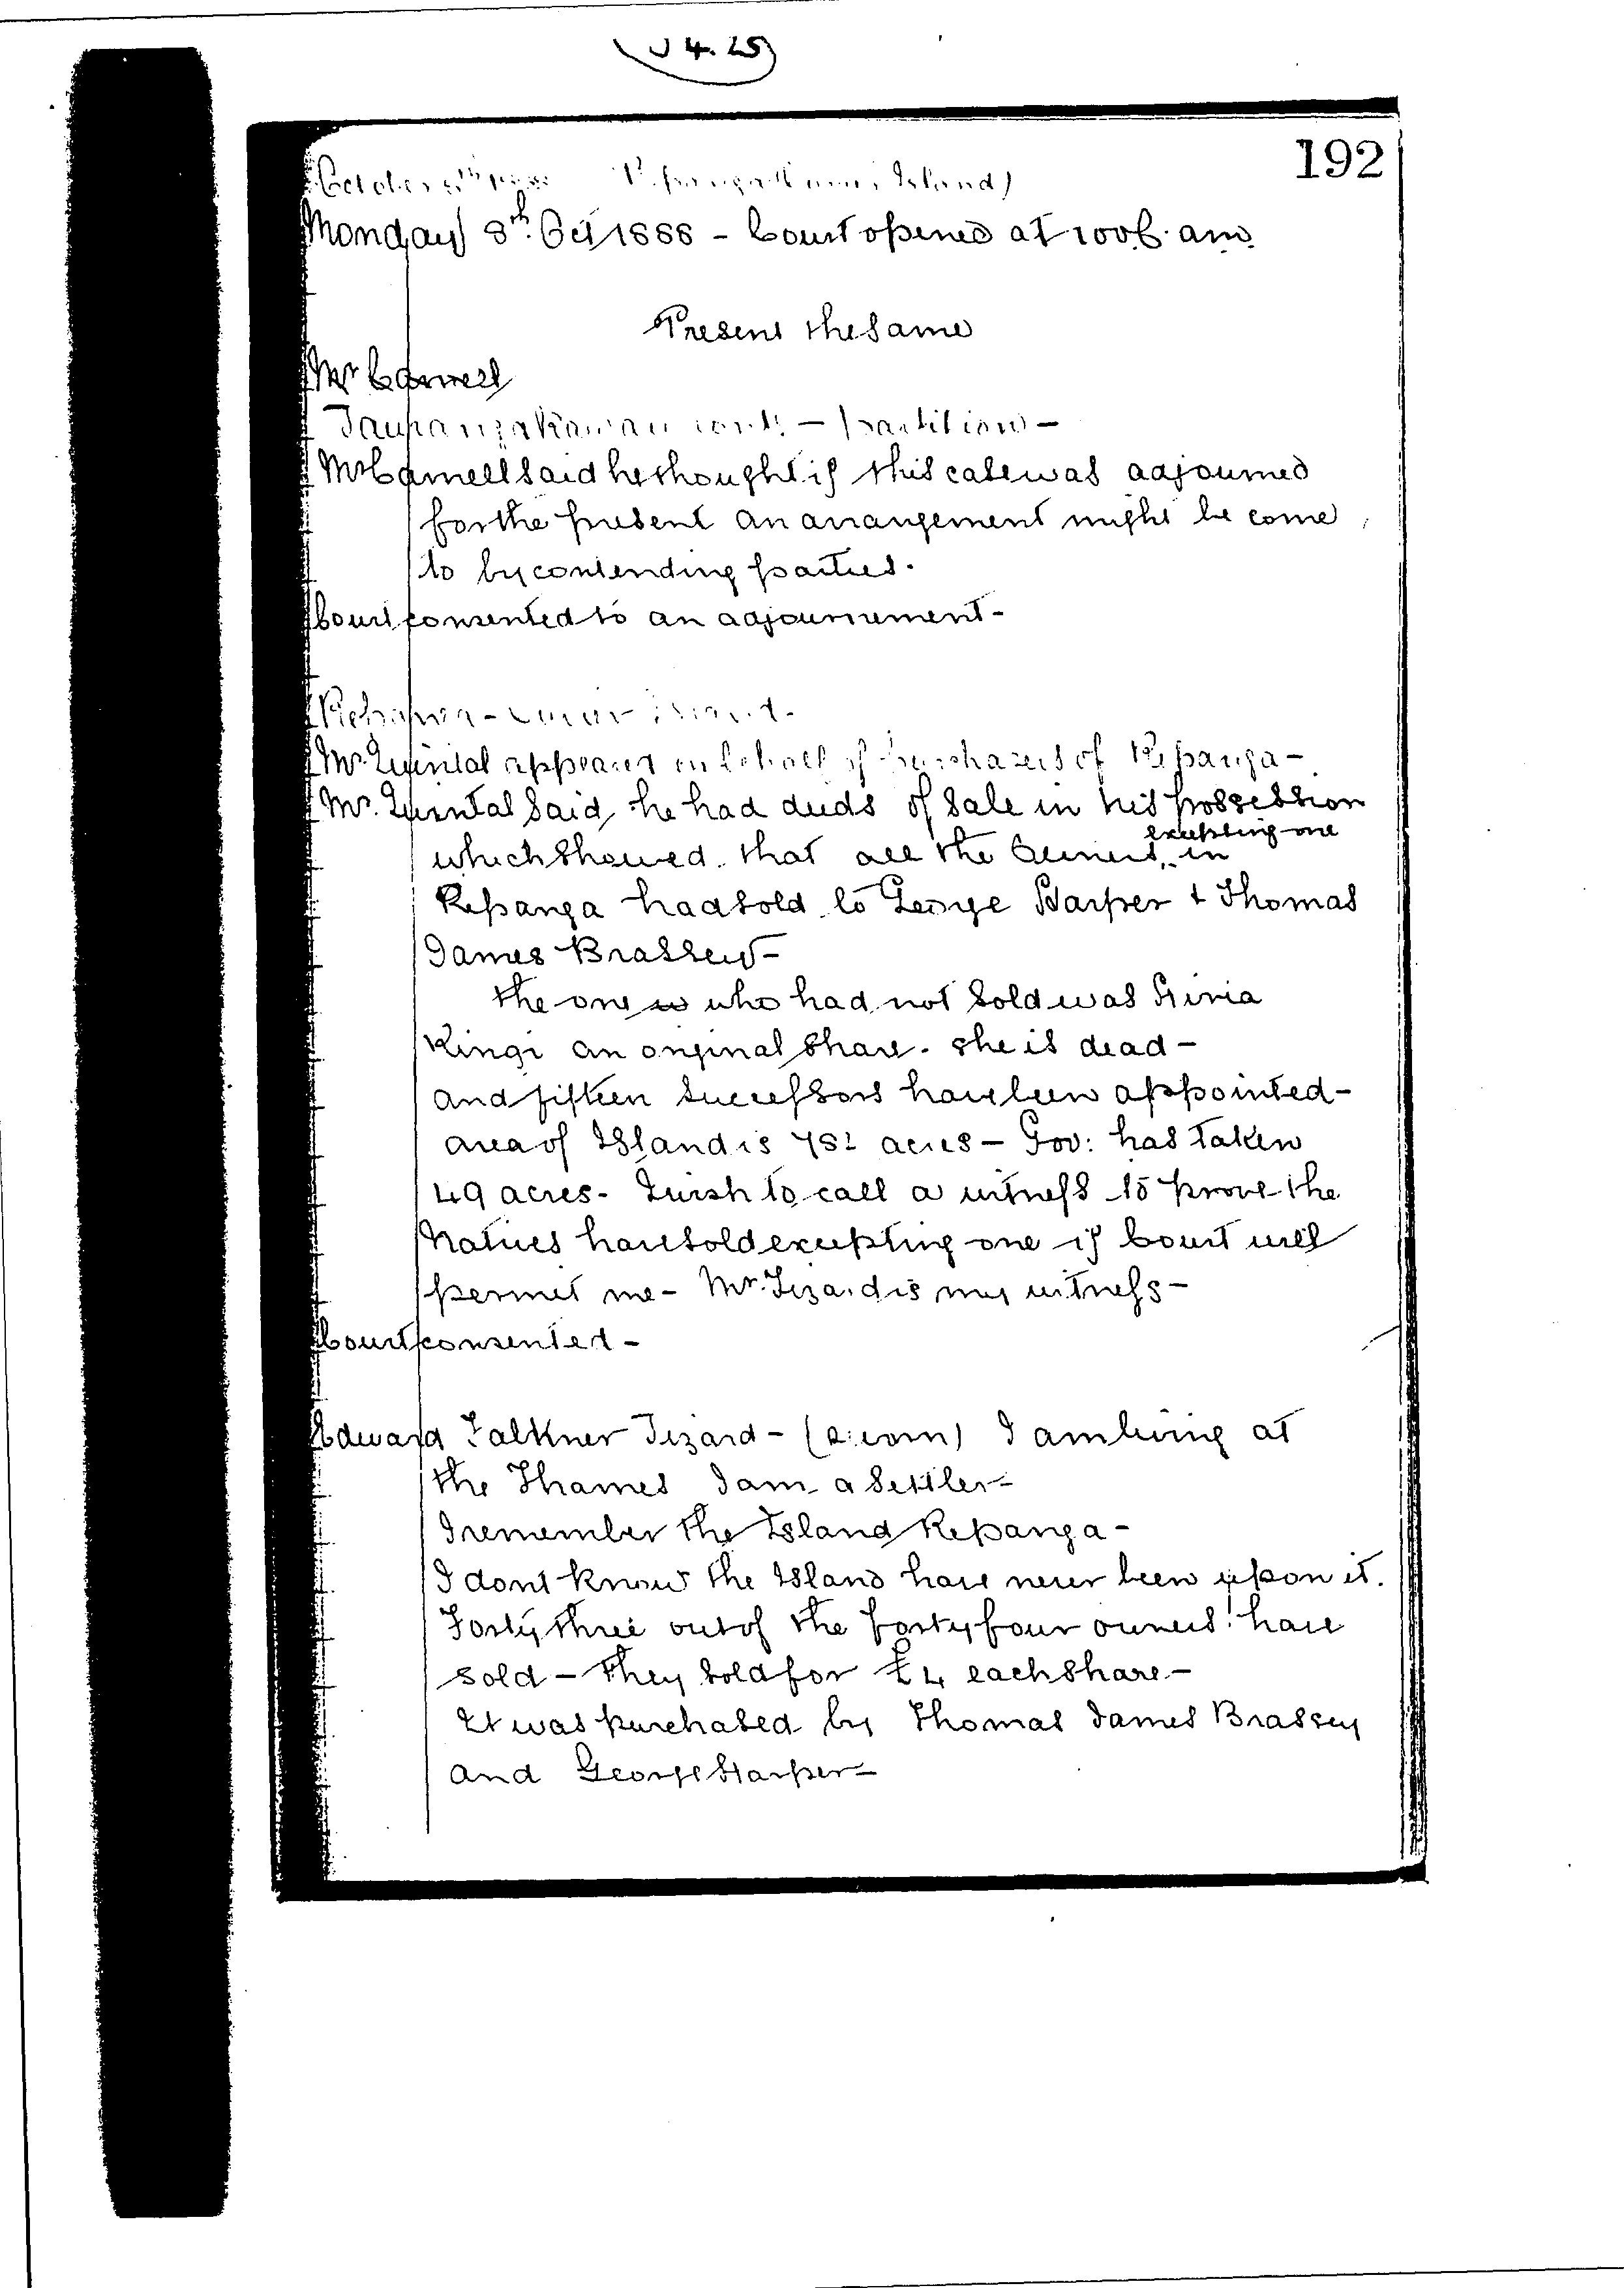 192
October 8th 1888 Repanga (Cuvier Island)
Monday 8th Oct 1888 - Court opened at 10 o'c. am
Present the same
Mr
Taupangakawau cont: - Partition -
said he thought if this case was adjourned
for the present an arrangement might be come
to by contending parties.
Court consented to an adjournment -
Repanga - Cuvier Island.
Mr. Quintal appeared on behalf of purchasers of Repanga -
Mr. Quintal said he had deeds of sale in his possession
which showed that all the owners, excepting one in
Repanga had sold to George Harper & Thomas
James Brassey -
the one who had not sold was
Kingi an original share. She is dead -
and fifteen successors have been appointed -
area of Island is acres - Gov: has taken
49 acres - I wish to call a witness to prove the
Natives have sold excepting one if Court will
permit me - Mr. Tizard is my witness -
Court consented -
Edward Falkner Tizard - (sworn) I am living at
the Thames I am a settler -
I remember the Island Repanga -
I dont know the Island have never been upon it.
Forty three out of the forty four owners have
sold - They sold for £4 each share -
It was purchased by Thomas James Brassey
and George Harper -